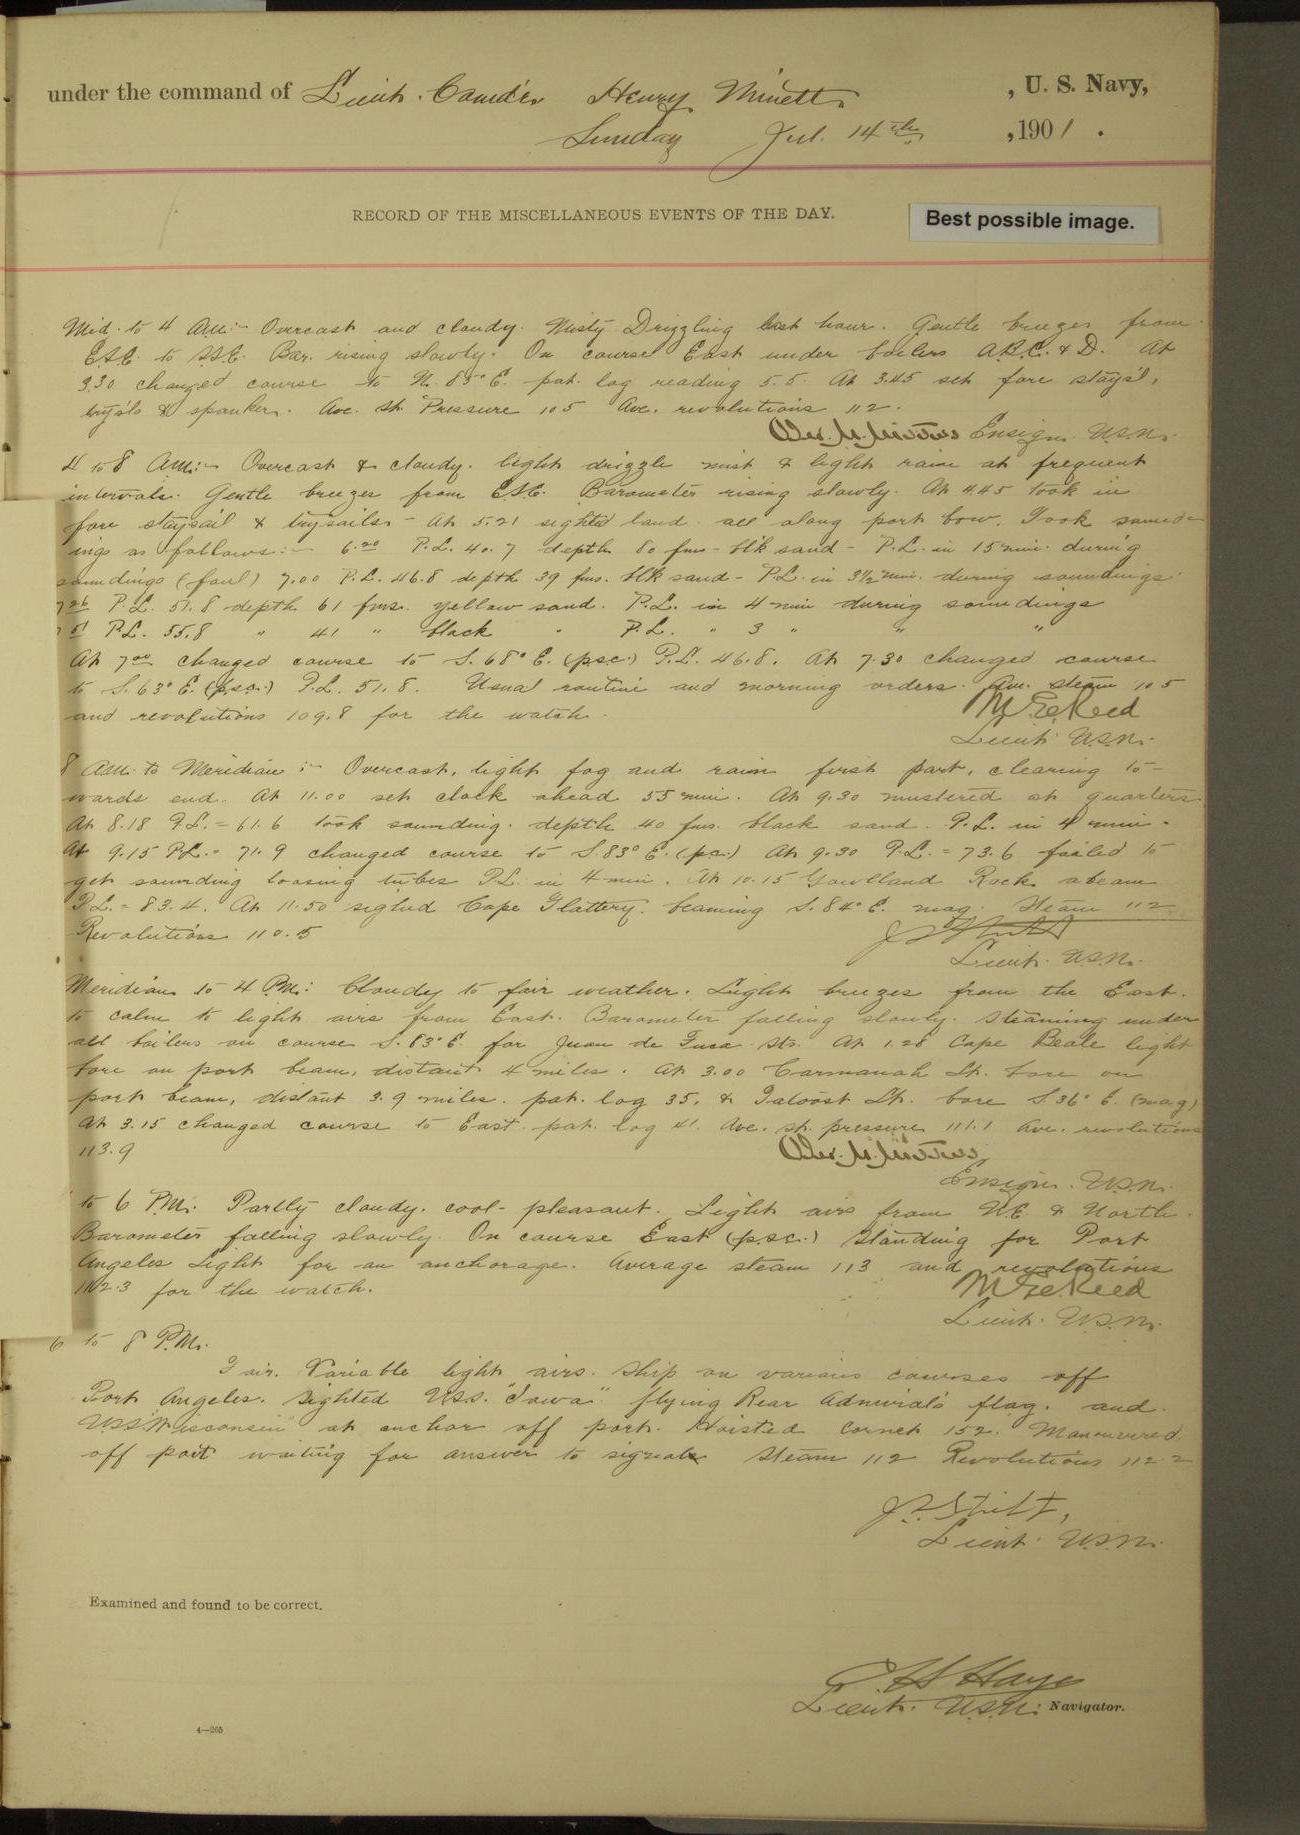 under the command of Lieut. Comd'r Henry Minett , U. S. Navy,
Sunday Jul. 14th , 1901 .
RECORD OF THE MISCELLANEOUS EVENTS OF THE DAY.
Best possible image.
Mid. to 4 A.M:- Overcast and cloudy. Misty Drizzling last hour. Gentle breezes from
E.S.E. to S.S.E. Bar. rising slowly. On course East under boilers A.B.C. & D. At
3.30 changed course to N. 85° E. pat. log reading 5.5. At 3.45 set fore stays'l,
trys'ls & spanker. Ave. St. Pressure 105 Ave. revolutions 112.
Ensign U.S.N.
4 to 8 A.M:- Overcast & cloudy. light drizzle mist & light rain at frequent
intervals. Gentle breezes from E.S.E. Barometer rising slowly. At 4.45 took in
fore staysail & trysails - At 5.21 sighted land all along port bow. Took sound-
ings as follows:- 6.20 P.L. 40.7 depth 80 fms - blk sand - P.L. in 15 min. during
soundings (foul) 7.00 P.L. 46.8 depth 39 fms. blk sand - P.L. in 3½ min. during soundings
7 26 P.L. 51.8 depth 61 fms. yellow sand. P.L. in 4 min during soundings
7 51 P.L. 55.8 " 41 " black " P.L. " 3 " " "
At 7 00 changed course to S. 68° E. (p.s.c.) P.L. 46.8. At 7.30 changed course
to S. 63° E. (p.s.c.) P.L. 51.8. Usual routine and morning orders. Ave. steam 105
and revolutions 109.8 for the watch.
M E Reed
Lieut. U.S.N.
8 A.M. to Meridian :- Overcast, light fog and rain first part, clearing to-
wards end. At 11.00 set clock ahead 55 min. At 9.30 mustered at quarters
At 8.18 P.L. = 61.6 took sounding. depth 40 fms. black sand. P.L. in 4 min.
At 9.15 P.L. = 71.9 changed course to S. 83° E. (p.c.) At 9.30 P.L. = 73.6 failed to
get sounding loosing tubes P.L. in 4 min. At 10.15 Gowlland Rock abeam
P.L. = 83.4. At 11.50 sighted Cape Flattery. beaming S. 84° E. mag. Steam 112
Revolutions 110.5
Lieut. U.S.N.
Meridian to 4 P.M: Cloudy to fair weather. Light breezes from the East.
to calm to light airs from East. Barometer falling slowly. Steaming under
all boilers on course S. 83° E. for Juan de Fuca Sts. At 1.28 Cape Beale light
bore on port beam, distant 4 miles. At 3.00 Carmanah Lt. bore on
port beam, distant 3.9 miles. pat. log 35, & Tatoosh Lt. bore S. 36° E. (mag)
At 3.15 changed course to East. pat. log 41. Ave. st. pressure 111.1 Ave. revolutions
113.9
Ensign. U.S.N.
to 6 P.M: Partly cloudy. cool - pleasant. Light airs from N.E. & North.
Barometer falling slowly. On course East (p.s.c.) Standing for Port
Angeles Light for an anchorage. Average steam 113 and revolutions
112.3 for the watch.
M E Reed
Lieut. U.S.N.
6 to 8 P.M.
Fair. Variable light airs. Ship on various courses off
Port Angeles. Sighted U.S.S. "Iowa" flying Rear Admiral's flag. and
U.S.S "Wisconsin" at anchor off port. Hoisted cornet 152. Maneuvered
off port waiting for answer to signals Steam 112 Revolutions 112.2
Lieut. U.S.N.
Examined and found to be correct.
Lieut. U.S.N. Navigator.
4—265